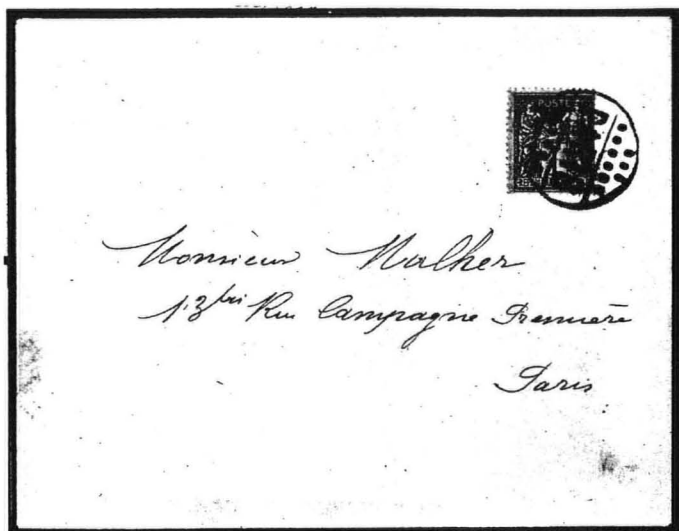 POSTE
Monsieur Malher
13 bis Rue Campagne Première
Paris